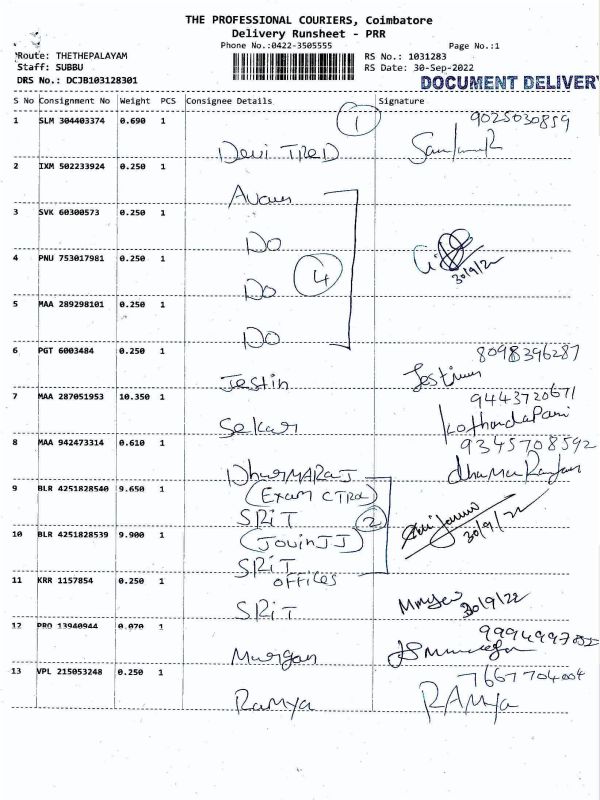 THE PROFESSIONAL COURIERS, Coimbatore
Delivery Runsheet - PRR
Phone No.:0422-3505555 Page No.:1
Route: THETHEPALAYAM RS No.: 1031283
Staff: SUBBU RS Date: 30-Sep-2022
DRS No.: DCJB103128301 DOCUMENT DELIVERY
S No Consignment No Weight PCS Consignee Details Signature
1 SLM 304403374 0.690 1 1 9025030859
Devi TReD
2 IXM 502233924 0.250 1
3 SVK 60300573 0.250 1
Do
4 PNU 753017981 0.250 1 4 30/9/22
Do
5 MAA 289298101 0.250 1
Do
6 PGT 6003484 0.250 1 8098396287
Jestin
7 MAA 287051953 10.350 1 9443720671
Sekar KothandaPani
8 MAA 942473314 0.610 1 9345708592
DhaRMARaJ
9 BLR 4251828540 9.650 1 (Exam CTRol)
SRiT 2 30/9/22
10 BLR 4251828539 9.900 1 (JovinJJ)
SRiT
11 KRR 1157854 0.250 1 offices
SRiT 30/9/22
12 PRO 13940944 0.070 1
Murgan
13 VPL 215053248 0.250 1 7667704004
RaMya RAMya